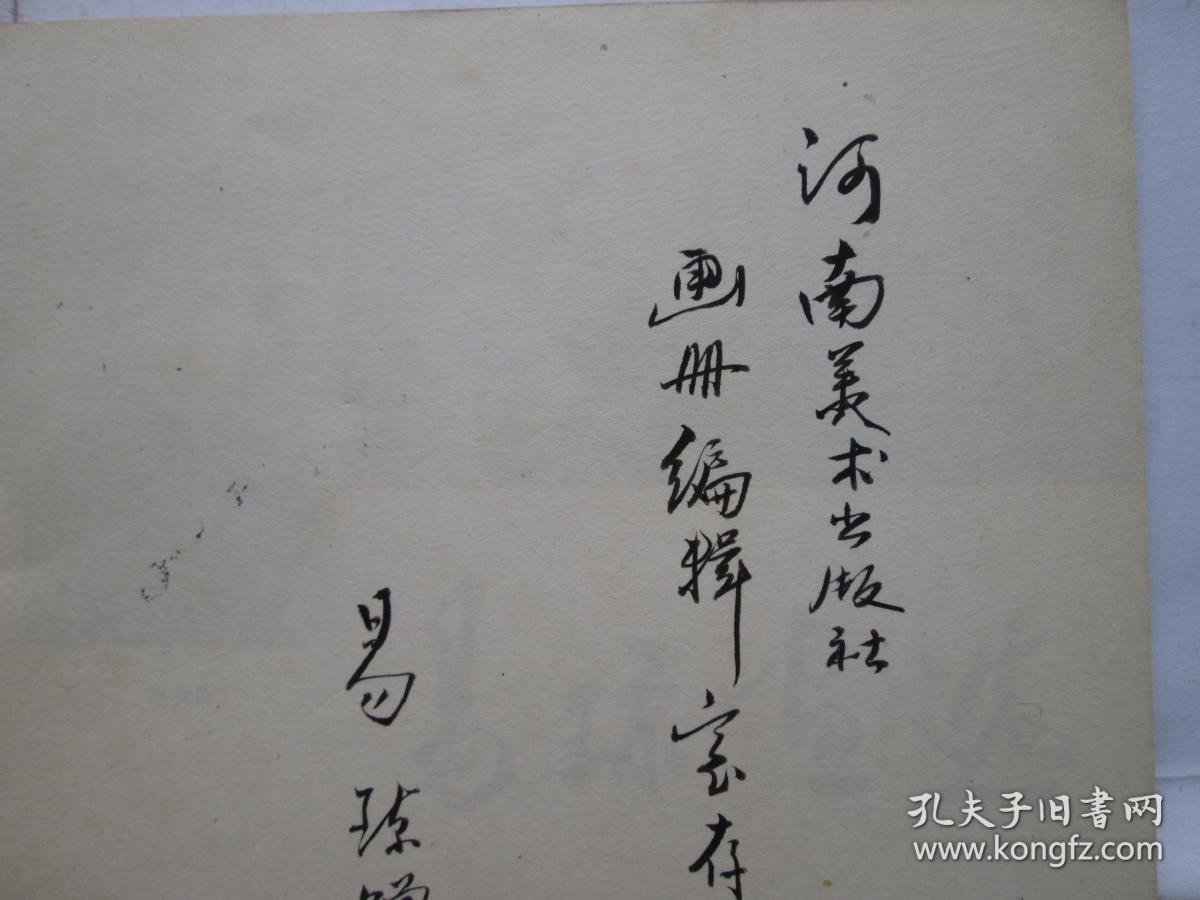 河南美术出版社
画册编辑室存
易琼赠
孔夫子旧书网
www.kongfz.com